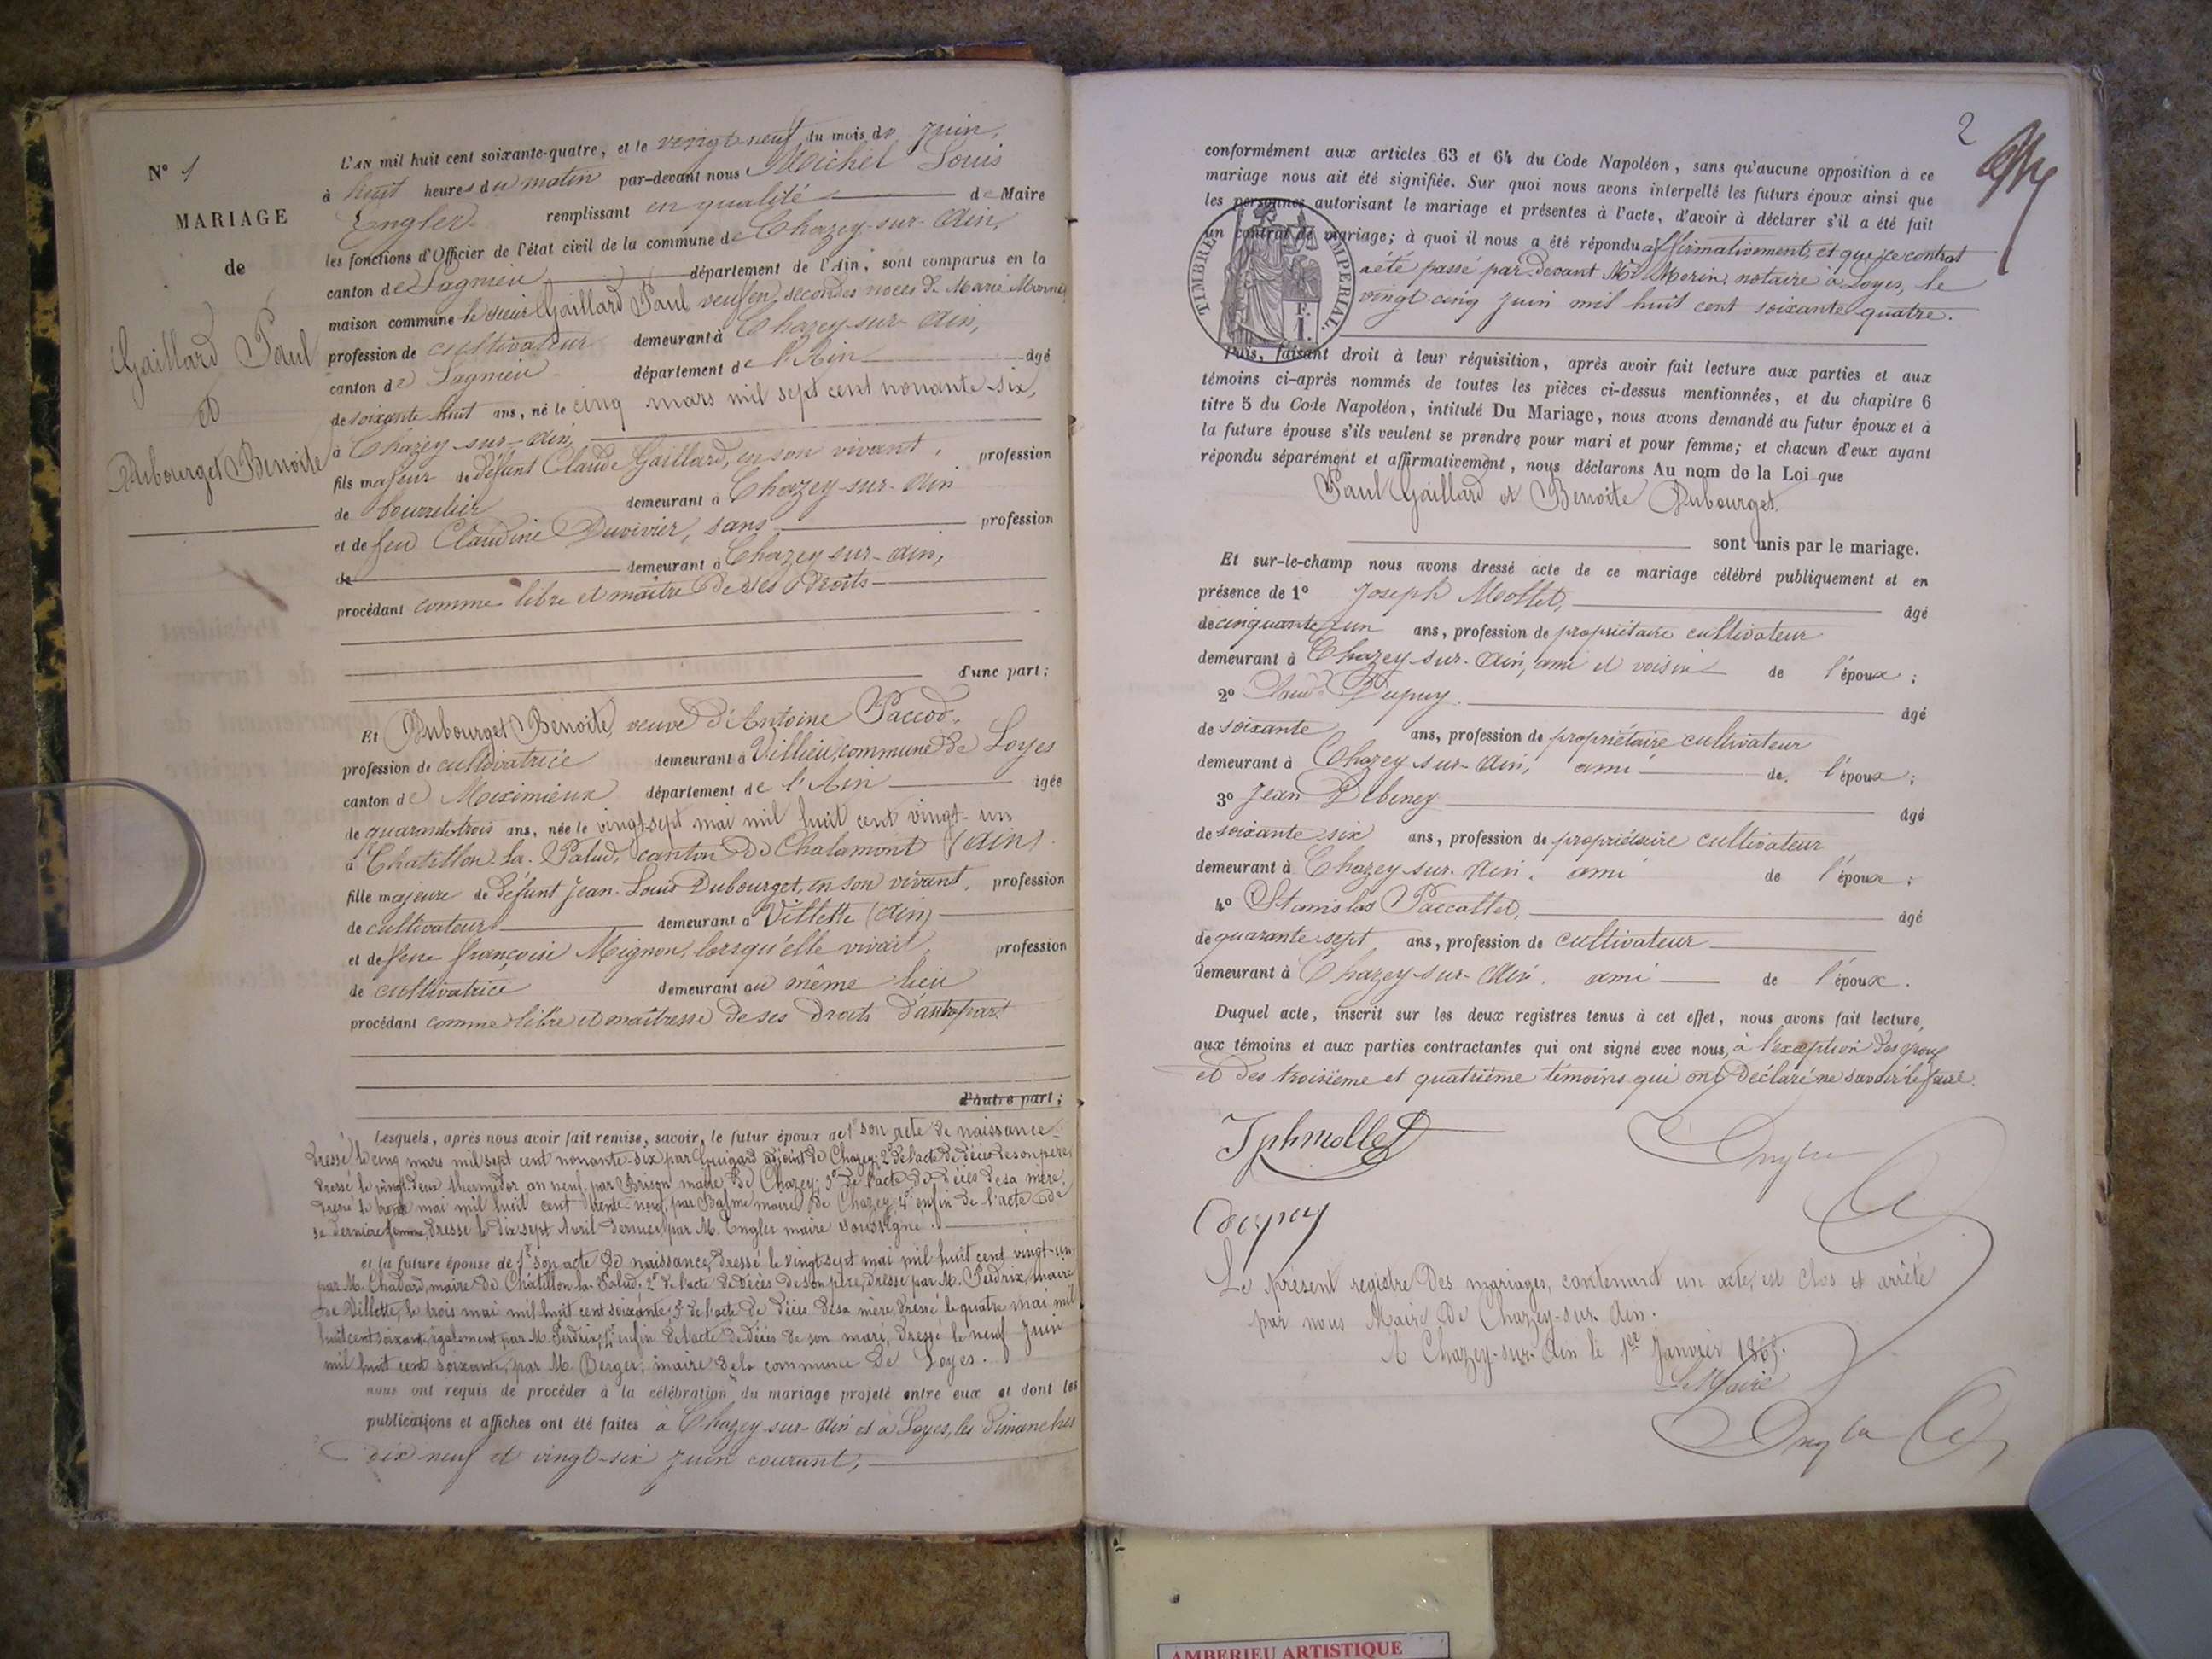 N° 1
MARIAGE
de
Gaillard Paul
et
Dubourget Benoite
L'AN mil huit cent soixante-quatre, et le vingt-neuf du mois de Juin,
à huit heures du matin par-devant nous Michel Louis
Engler remplissant en qualité de Maire
les fonctions d'Officier de l'état civil de la commune de Chazey-sur-Ain,
canton de Lagnieu département de l'Ain, sont comparus en la
maison commune le sieur Gaillard Paul veuf en secondes noces de Marie
profession de cultivateur demeurant à Chazey-sur-Ain,
canton de Lagnieu département de l'Ain âgé
de soixante huit ans, né le cinq mars mil sept cent nonante-six,
à Chazey-sur-Ain,
fils majeur de défunt Claude Gaillard, en son vivant, profession
de bourrelier demeurant à Chazey-sur-Ain
et de feu Claudine Duvivier, sans profession
de demeurant à Chazey-sur-Ain,
procédant comme libre et maître de ses droits
d'une part;
Et Dubourget Benoite, veuve d'Antoine Paccod,
profession de cultivatrice demeurant à Villieu, commune de Loyes
canton de Meximieux département de l'Ain âgée
de quarante-trois ans, née le vingt-sept mai mil huit cent vingt-un
à Chatillon-la-Palud, canton de Chalamont (Ain).
fille majeure de défunt Jean-Louis Dubourget, en son vivant, profession
de cultivateur demeurant à Villette (Ain)
et de feue françoise Mignon, lorsqu'elle vivait, profession
de cultivatrice demeurant au même lieu
procédant comme libre et maîtresse de ses droits d'autre part
d'autre part;
Lesquels, après nous avoir fait remise, savoir, le futur époux de 1° son acte de naissance
dressé le cinq mars mil sept cent nonante-six par Guigard adjoint de Chazey; 2° de l'acte de décès de son père,
dressé le vingt-deux thermidor an neuf, par Brison maire de Chazey; 3° de l'acte de décès de sa mère,
dressé le mai mil huit cent trente-neuf, par Balme maire de Chazey; 4° enfin de l'acte de
sa dernière femme, dressé le dix sept Avril dernier, par M. Engler maire soussigné.
et la future épouse de 1° son acte de naissance, dressé le vingt-sept mai mil huit cent vingt-un
par M. Chabard, maire de Chatillon-la-Palud; 2° de l'acte de décès de son père, dressé par M. Perdrix, maire
de Villette, le trois mai mil huit cent soixante; 3° de l'acte de décès de sa mère, dressé le quatre mai mil
huit cent soixante, également par M. Perdrix; 4° enfin de l'acte de décès de son mari, dressé le neuf Juin
mil huit cent soixante, par M. Berger, maire de la commune de Loyes.
nous ont requis de procéder à la célébration du mariage projeté entre eux et dont les
publications et affiches ont été faites à Chazey-sur-Ain et à Loyes, les dimanches
dix neuf et vingt-six Juin courant,
2
conformément aux articles 63 et 64 du Code Napoléon, sans qu'aucune opposition à ce
mariage nous ait été signifiée. Sur quoi nous avons interpellé les futurs époux ainsi que
les personnes autorisant le mariage et présentes à l'acte, d'avoir à déclarer s'il a été fait
un contrat de mariage; à quoi il nous a été répondu affirmativement, et que ce contrat
a été passé par-devant Me Morin, notaire à Loyes, le
vingt-cinq Juin mil huit cent soixante-quatre.
TIMBRE IMPERIAL.
F.
1.
Puis, faisant droit à leur réquisition, après avoir fait lecture aux parties et aux
témoins ci-après nommés de toutes les pièces ci-dessus mentionnées, et du chapitre 6
titre 5 du Code Napoléon, intitulé Du Mariage, nous avons demandé au futur époux et à
la future épouse s'ils veulent se prendre pour mari et pour femme; et chacun d'eux ayant
répondu séparément et affirmativement, nous déclarons Au nom de la Loi que
Paul Gaillard et Benoite Dubourget.
sont unis par le mariage.
Et sur-le-champ nous avons dressé acte de ce mariage célébré publiquement et en
présence de 1° Joseph Mollet, âgé
de cinquante-un ans, profession de propriétaire cultivateur
demeurant à Chazey-sur-Ain, ami et voisin de l'époux;
2° Dupuy âgé
de soixante ans, profession de propriétaire cultivateur
demeurant à Chazey-sur-Ain, ami de l'époux;
3° Jean Debeney âgé
de soixante-six ans, profession de propriétaire cultivateur
demeurant à Chazey-sur-Ain, ami de l'époux;
4° Stanislas Paccallet, âgé
de quarante-sept ans, profession de cultivateur
demeurant à Chazey-sur-Ain, ami de l'époux.
Duquel acte, inscrit sur les deux registres tenus à cet effet, nous avons fait lecture,
aux témoins et aux parties contractantes qui ont signé avec nous, à l'exception des époux
et des troisième et quatrième témoins qui ont déclaré ne savoir le faire.
Jph mollet
Engler
Dupuy
Le présent registre des mariages, contenant un acte, est clos et arrêté
par nous Maire de Chazey-sur-Ain.
A Chazey-sur-Ain le 1er Janvier 1865.
Le Maire
Engler
AMBERIEU ARTISTIQUE